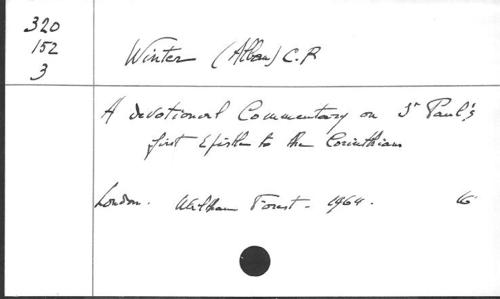 320
152
3
Winter (Alban) C.R
A devotional Commentary on St Paul's
first Epistle to the Corinthians
London. Waltham Forest - 1964.